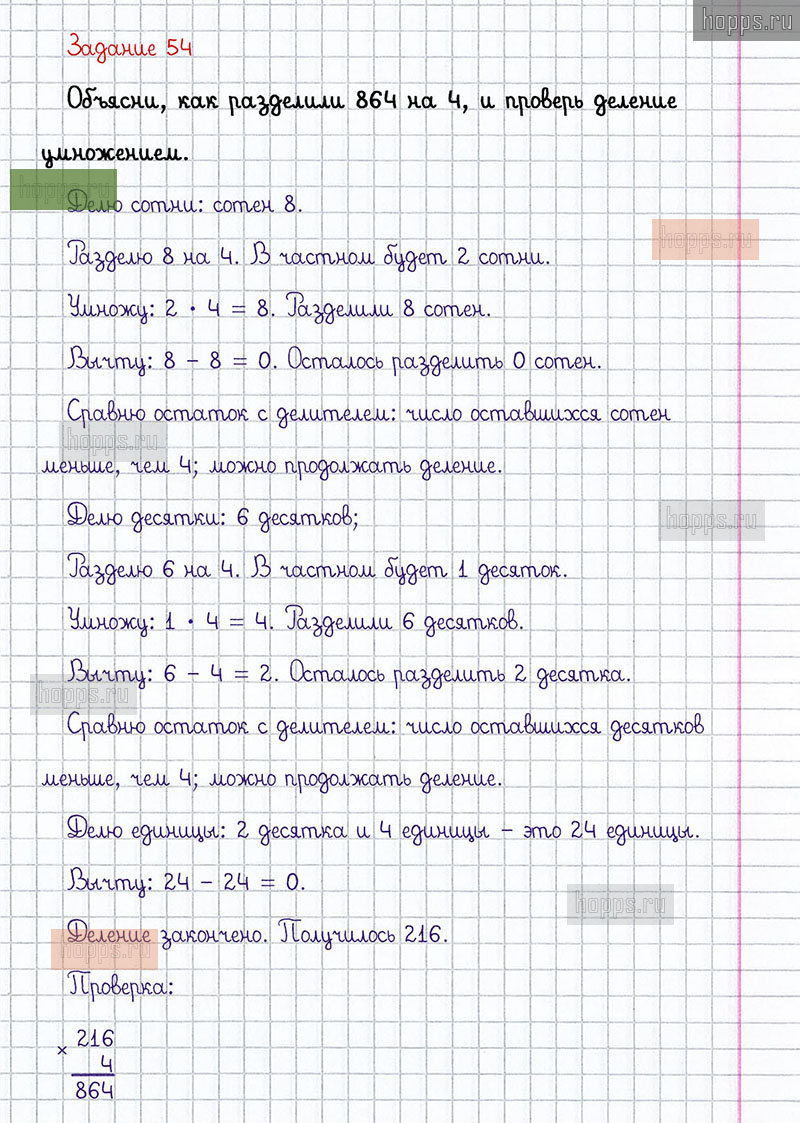 hopps.ru
Задание 54
Объясни, как разделили 864 на 4, и проверь деление
умножением.
hopps.ru
Делю сотни: сотен 8.
hopps.ru
Разделю 8 на 4. В частном будет 2 сотни.
Умножу: 2 · 4 = 8. Разделили 8 сотен.
Вычту: 8 – 8 = 0. Осталось разделить 0 сотен.
Сравню остаток с делителем: число оставшихся сотен
hopps.ru
меньше, чем 4; можно продолжать деление.
Делю десятки: 6 десятков;
hopps.ru
Разделю 6 на 4. В частном будет 1 десяток.
Умножу: 1 · 4 = 4. Разделили 6 десятков.
Вычту: 6 – 4 = 2. Осталось разделить 2 десятка.
hopps.ru
Сравню остаток с делителем: число оставшихся десятков
меньше, чем 4; можно продолжать деление.
Делю единицы: 2 десятка и 4 единицы – это 24 единицы.
Вычту: 24 – 24 = 0.
hopps.ru
Деление закончено. Получилось 216.
hopps.ru
Проверка:
× 216
4
864